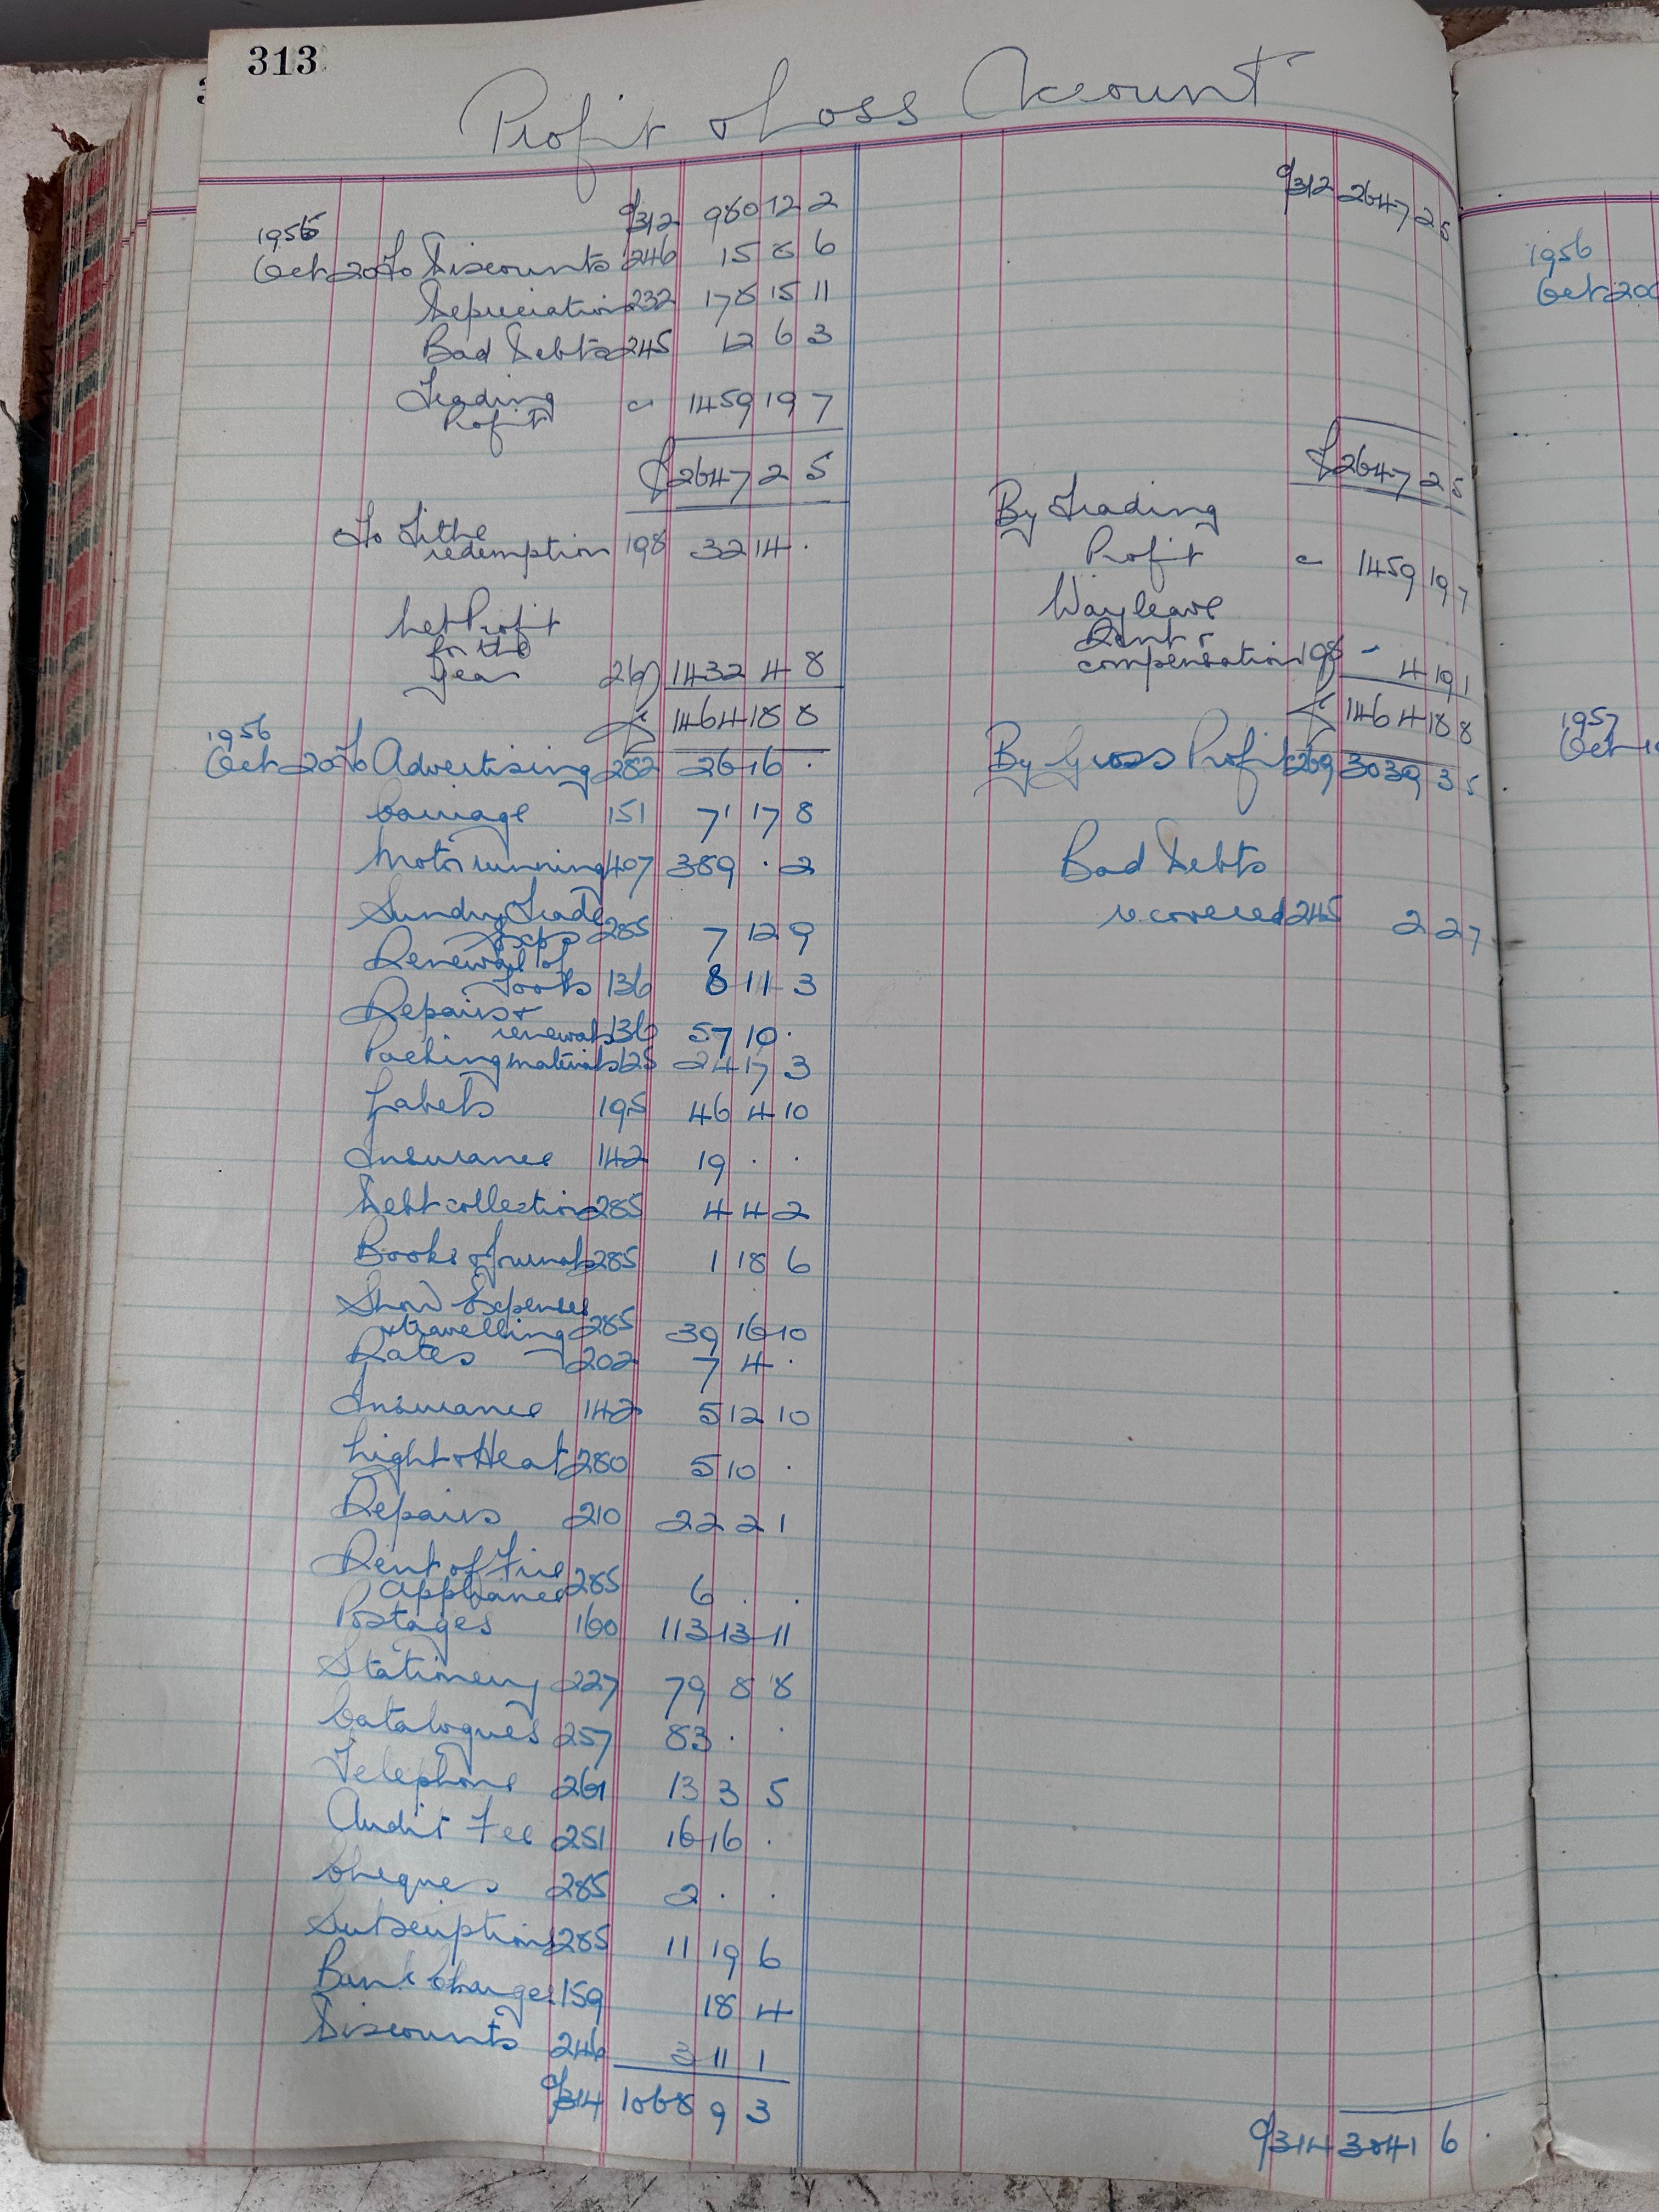 313
Profit & Loss Account
c/312 980 12 2
1955
Oct 20 To Discounts 246 15 8 6
Depreciation 232 178 15 11
Bad Debts 245 12 6 3
Trading
Profit c/ 1459 19 7
£2647 2 5
To Tithe
redemption 198 32 14 .
Net Profit
for the
year 269 1432 4 8
£ 1464 18 8
1956
Oct 20 To Advertising 282 26 16 .
Carriage 151 71 17 8
Motor running 407 389 . 2
Sundry Trade
Exps 285 7 12 9
Renewal of
Tools 136 8 11 3
Repairs &
renewals 136 57 10 .
Packing materials 125 24 17 3
Labels 195 46 4 10
Insurance 142 19 . .
Debt collection 285 4 4 2
Books & Journals 285 1 18 6
Show Expenses
& travelling 285 39 16 10
Rates 202 7 4 .
Insurance 142 5 12 10
Light & Heat 280 5 10 .
Repairs 210 22 2 1
Rent of Fire
Appliances 285 6 . .
Postages 160 113 13 11
Stationery 227 79 8 8
Catalogues 257 83 . .
Telephone 261 13 3 5
Audit Fee 251 16 16 .
Cheques 285 2 . .
Subscriptions 285 11 19 6
Bank Charges 159 18 4
Discounts 246 3 11 1
c/314 1068 9 3
c/312 2647 2 5
£2647 2 5
By Trading
Profit c/ 1459 19 7
Wayleave
Rent &
compensation 198 - 4 19 1
£ 1464 18 8
By Gross Profit 269 3039 3 5
Bad Debts
recovered 245 2 2 7
c/314 3041 6 .
1956
Oct 20
1957
Oct